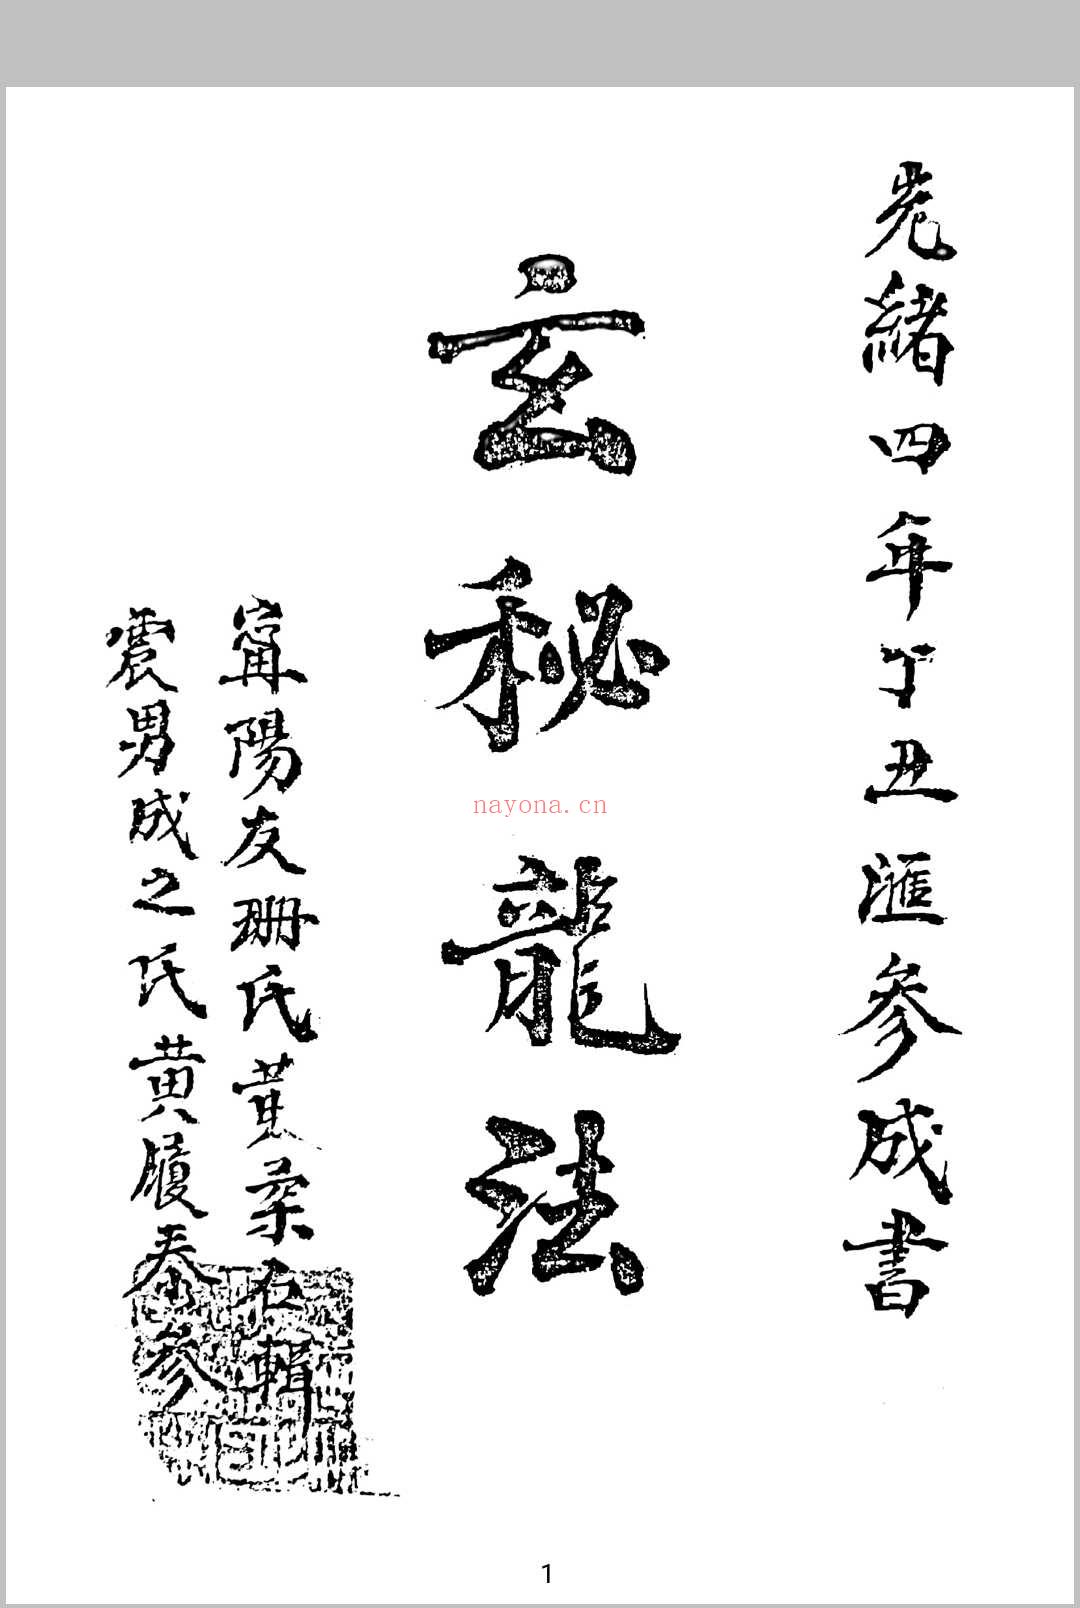 光緒四年丁丑滙參成書
玄秘龍法
甯陽友珊氏黃榮 輯
震男成之氏黄履泰參
nayona.cn
1